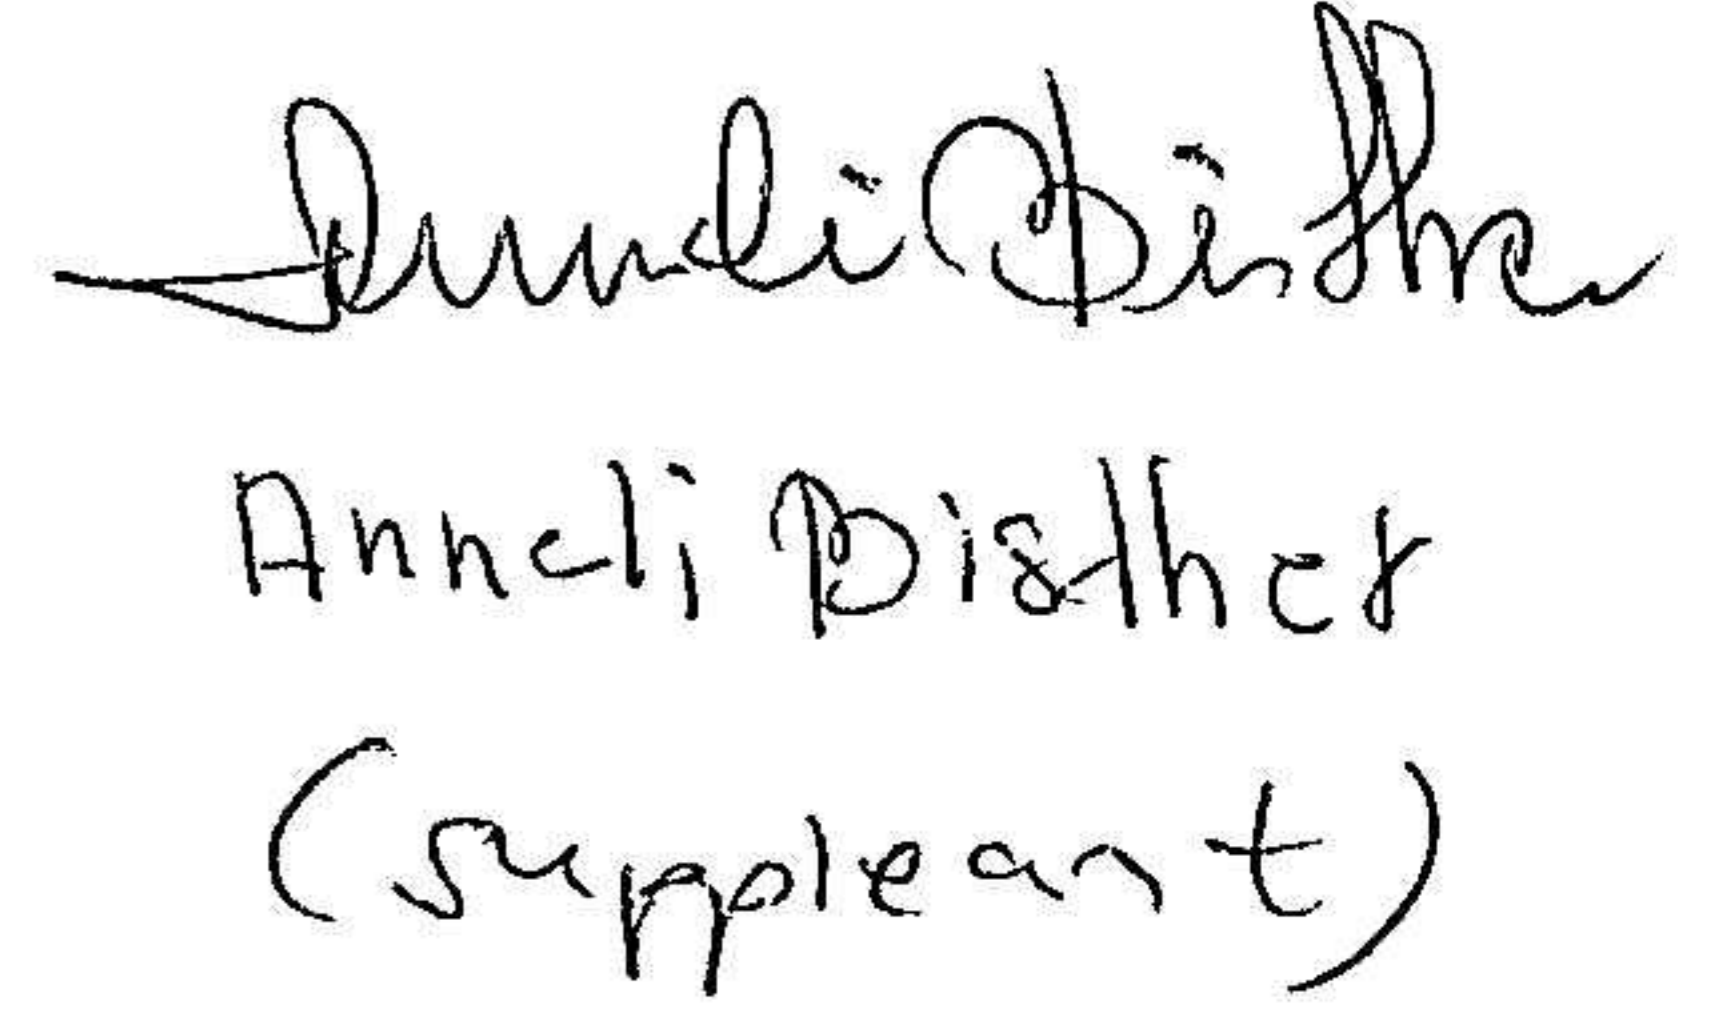 Anneli Disther
Anneli Disther
(suppleant)